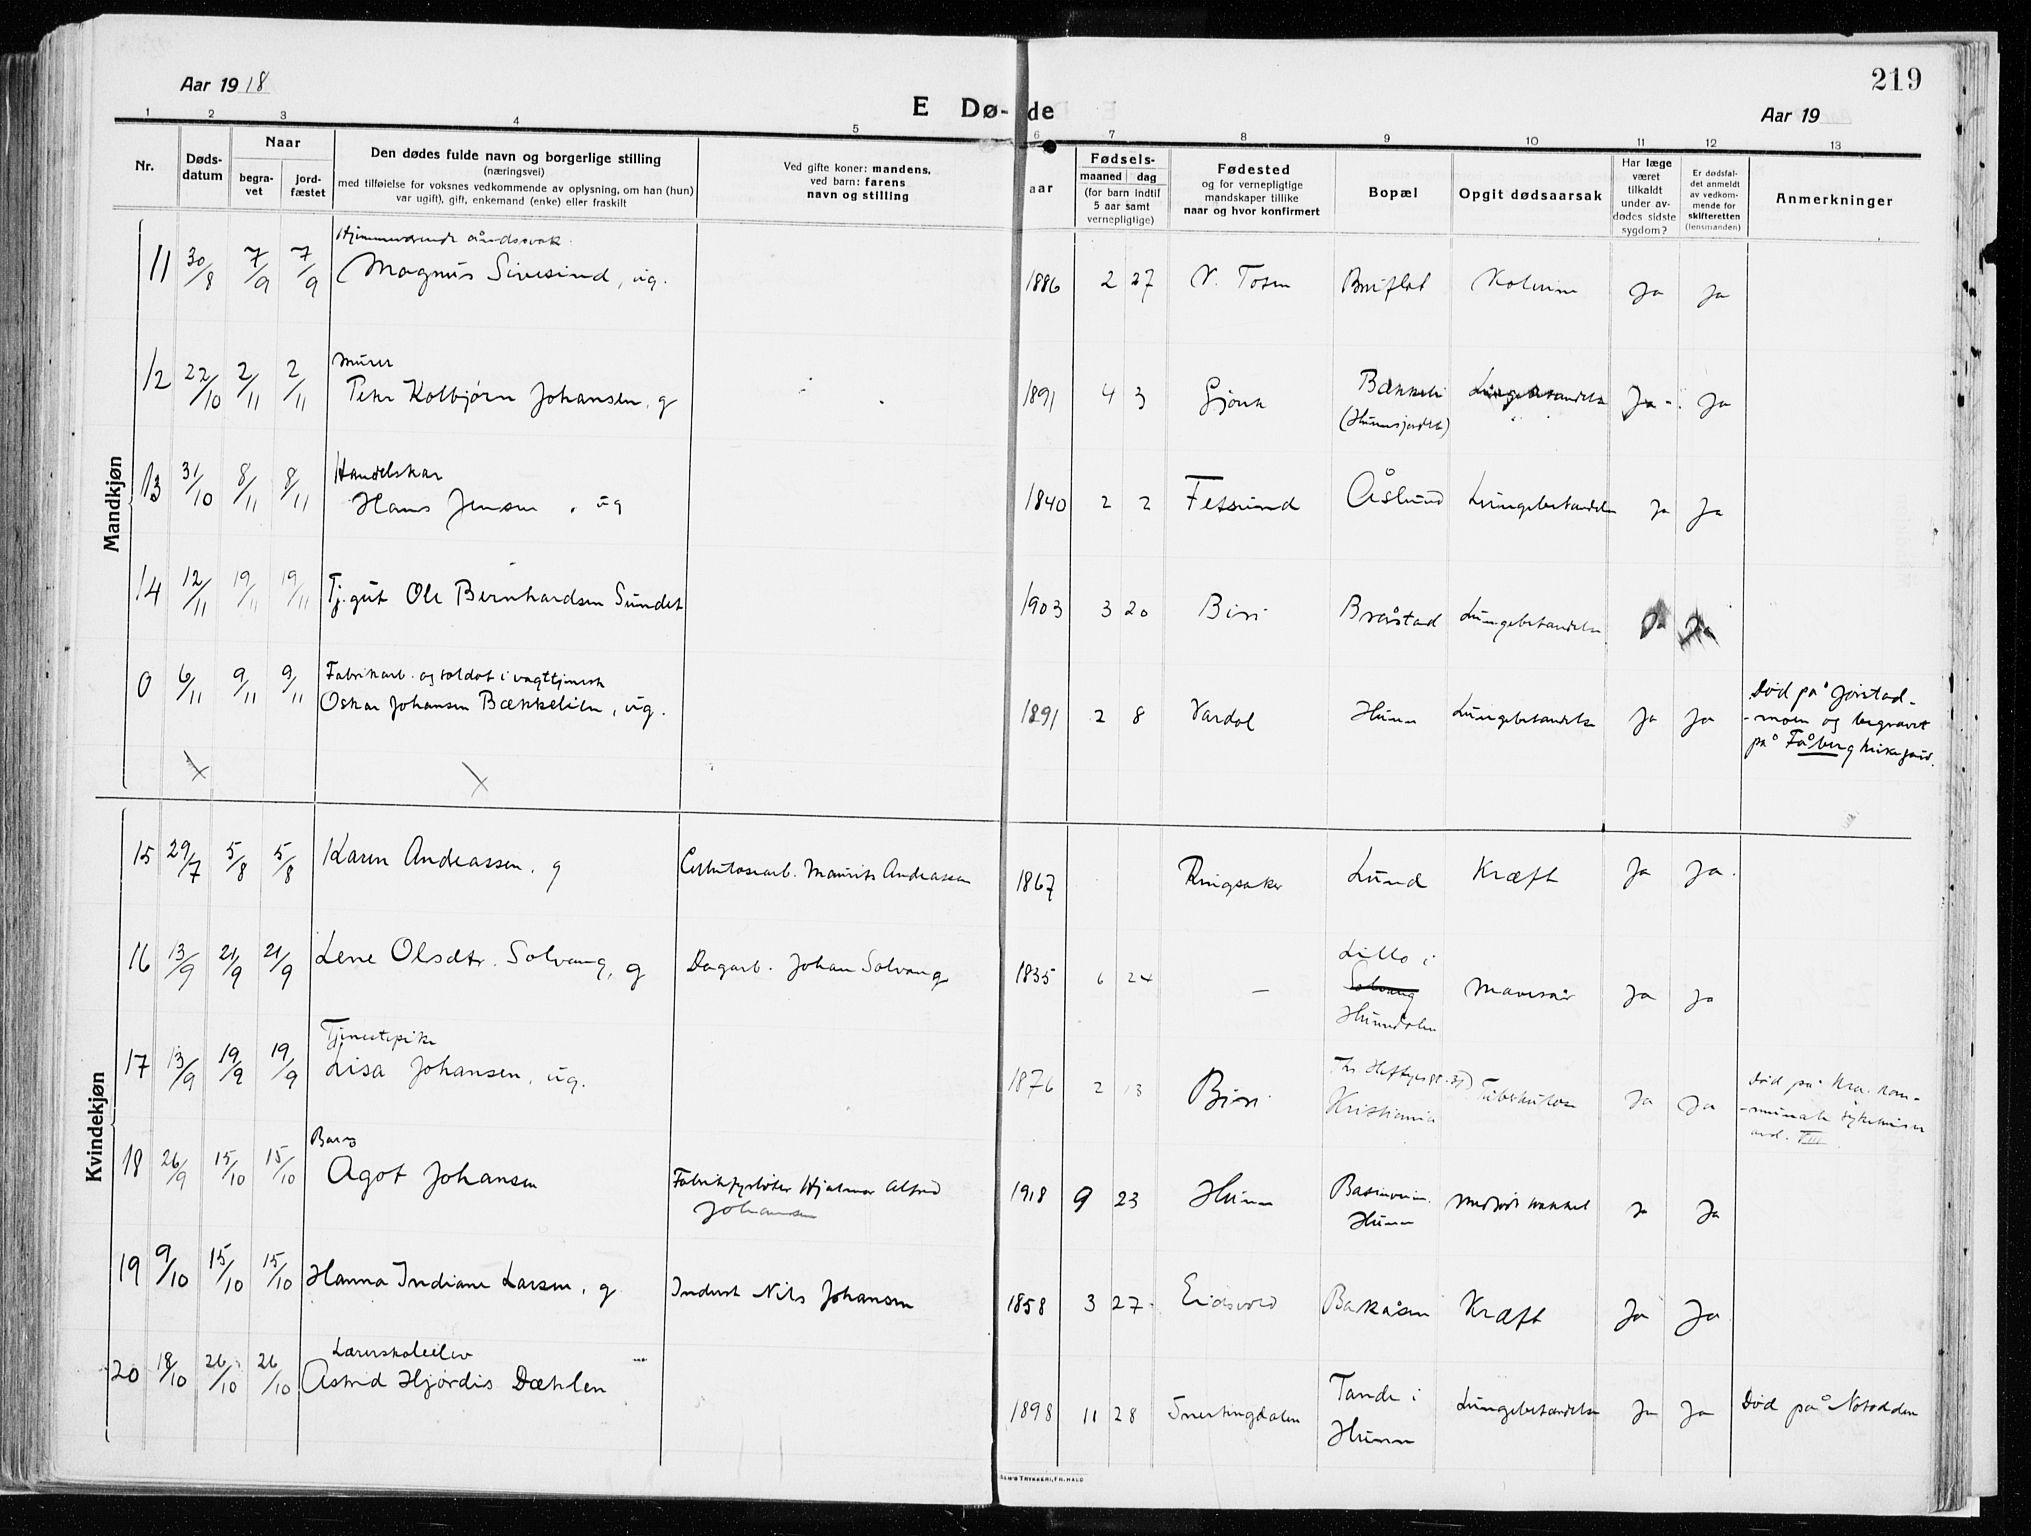 Aar 1918
E Dø-de
Aar 19
219
1 2 3 4 5 6 7 8 9 10 11 12 13
Nr.
Døds-
datum
Naar
begra-
vet
jord-
fæstet
Den dødes fulde navn og borgerlige stilling
(næringsvei)
med tilføielse for voksnes vedkommende av oplysning, om han (hun)
var ugift), gift, enkemand (enke) eller fraskilt
Ved gifte koner: mandens,
ved barn: farens
navn og stilling
aar
Fødsels-
maaned dag
(for barn indtil
5 aar samt
vernepligtige)
Fødested
og for vernepligtige
mandskaper tillike
naar og hvor konfirmert
Bopæl
Opgit dødsaarsak
Har læge
været
tilkaldt
under av-
dødes sidste
sygdom?
Er dødsfal-
det anmeldt
av vedkom-
mende for
skifteretten
(lensmanden)
Anmerkninger
Mandkjøn
Hjemmeværende åndssvak
11 30/8 7/9 7/9 Magnus Sivesind, ug. 1886 2 27 V. Toten Ja Ja
Murer
12 22/10 2/11 2/11 Petr Kolbjørn Johansen, g 1891 4 3 Gjøvik Bækkeli Lungebetændelse Ja Ja
(Hunnsjordet)
Handelskar
13 31/10 8/11 8/11 Hans Jensen, ug 1840 2 2 Fetsund Åslund Lungebetændelse Ja Ja
14 12/11 19/11 19/11 Tj.gut Ole Bernhardsen Sundet 1903 3 20 Biri Bråstad Lungebetændelse Ja Ja
Fabrikarb. og soldat i vagttjeneste
0 6/11 9/11 9/11 Oskar Johansen Bækkelien, ug. 1891 2 8 Vardal Hunn Lungebetændelse Ja Ja
Død på Jørstad-
-moen og begravet
på Fåberg kirkegård.
Kvindekjøn
15 29/7 5/8 5/8 Karen Andreassen, g Cellulosearb. Maurits Andreassen 1867 Ringsaker Lund Kræft Ja Ja.
16 13/9 21/9 21/9 Lene Olsdtr. Solvang, g Dagarb. Johan Solvang 1835 6 24 — Lillo i
Solvang
Hunndalen Mavesår Ja Ja
Tjenestepike
17 13/9 19/9 19/9 Lisa Johansen, ug. 1876 2 13 Biri Ths Heftyesgt. 37
Kristiania Tuberkulose Ja Ja
Død på Kra. kom-
-munale sykehus
avd. VIII
Barn
18 26/9 15/10 15/10 Agot Johansen Fabrikfyrbøter Hjalmar Alfred
Johansen 1918 9 23 Hunn
Hunn Medfødt svakhet Ja Ja
19 9/10 15/10 15/10 Hanna Indiane Larsen, g Inderst Nils Johansen 1858 3 27 Eidsvold Bakåsen Kræft Ja Ja
Lærerskoleelev
20 18/10 26/10 26/10 Astrid Hjørdis Dæhlen 1898 11 28 Snertingdalen Tande i
Hunn Lungebetændelse Ja Ja Død på Notodden
TRYKKERI, FR. HALD